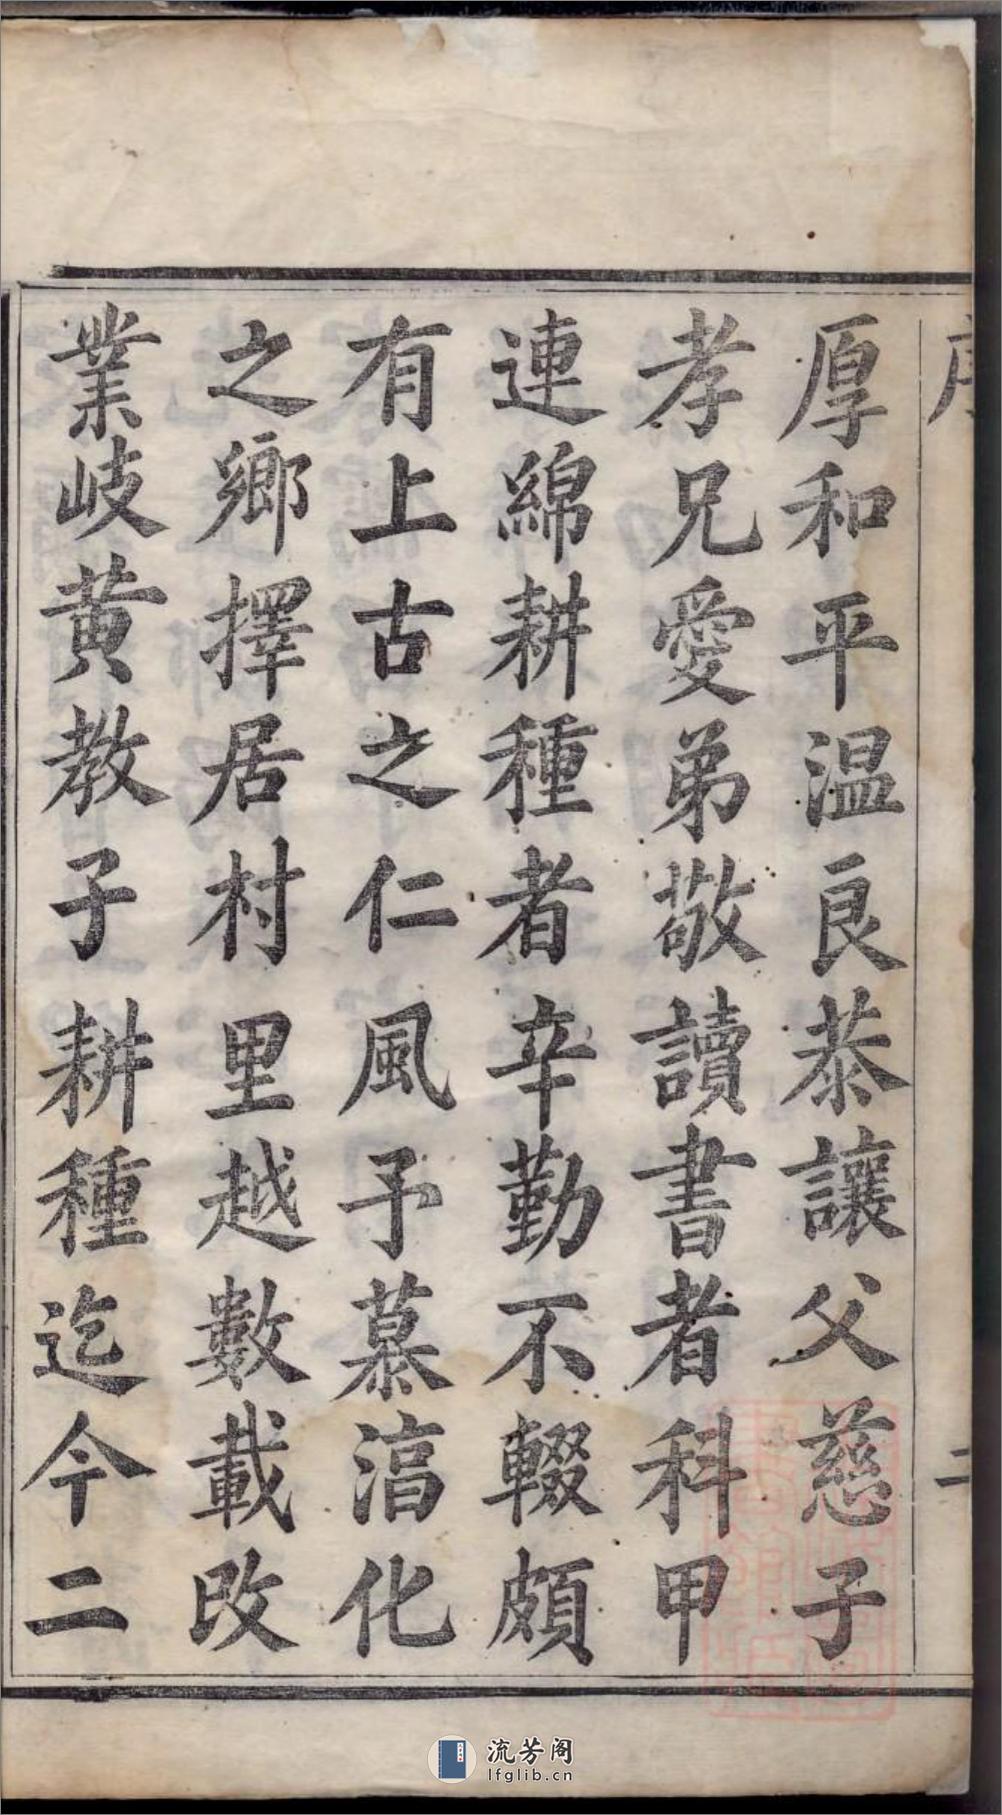 序
二
厚和平温良恭讓父慈子
孝兄愛弟敬讀書者科甲
連綿耕種者辛勤不輟頗
有上古之仁風予慕湻化
之鄉擇居村里越數載改
業岐黄教子耕種迄今二
流芳阁
lfglib.cn